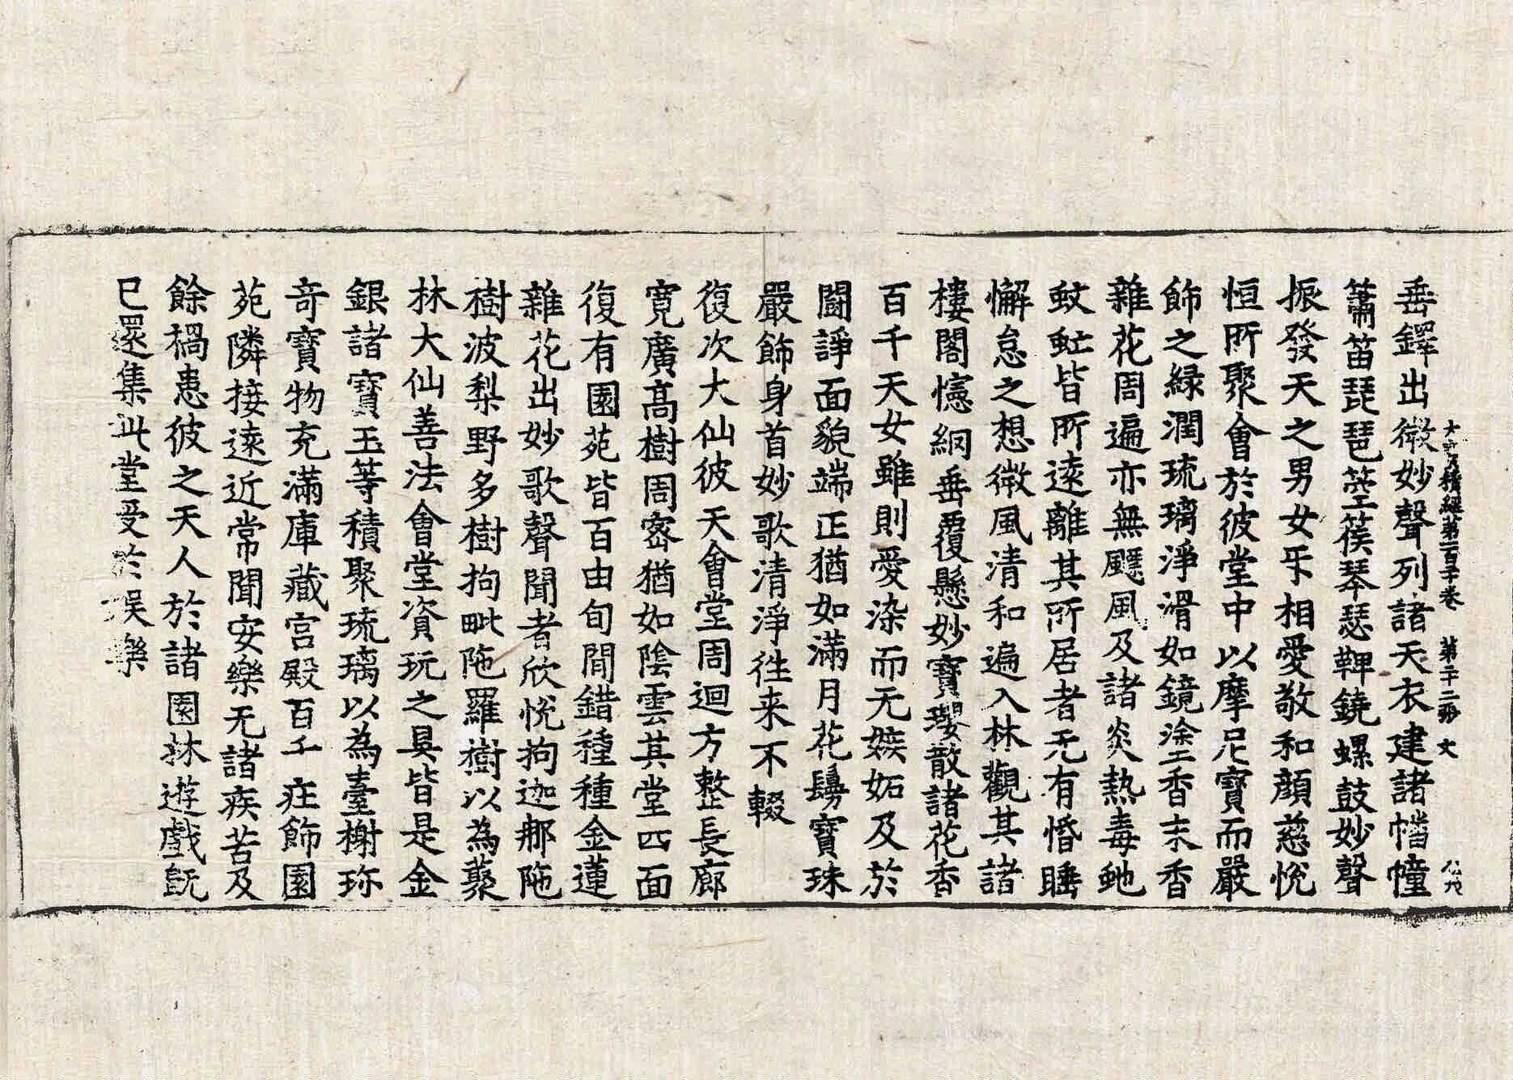 大寶積經第一百十卷 第二十二張 文
垂鐸出微妙聲列諸天衣建諸幡幢
簫笛琵琶箜篌琴瑟鞞鐃螺鼓妙聲
振發天之男女㸦相愛敬和顔慈悅
恒所聚會於彼堂中以摩尼寶而嚴
飾之緑潤琉璃淨滑如鏡塗香末香
雜花周遍亦無飃風及諸炎熱毒虵
蚊虻皆所遠離其所居者无有惛睡
懈怠之想微風清和遍入林觀其諸
樓閣幰網垂覆懸妙寶瓔散諸花香
百千天女雖則愛染而无嫉妬及於
鬪諍面貌端正猶如滿月花鬘寶珠
嚴飾身首妙歌清淨徃来不輟
復次大仙彼天會堂周迴方整長廊
寛廣高樹周密猶如陰雲其堂四面
復有園苑皆百由旬間錯種種金蓮
雜花出妙歌聲聞者欣悅拘迦那陁
樹波梨野多樹拘毗陁羅樹以為藂
林大仙善法會堂資玩之具皆是金
銀諸寶玉等積聚琉璃以為臺榭珎
奇寶物充滿庫藏宫殿百千莊飾園
苑隣接逺近常聞安樂无諸疾苦及
餘禍患彼之天人於諸園林遊戲既
已還集此堂受於娛樂